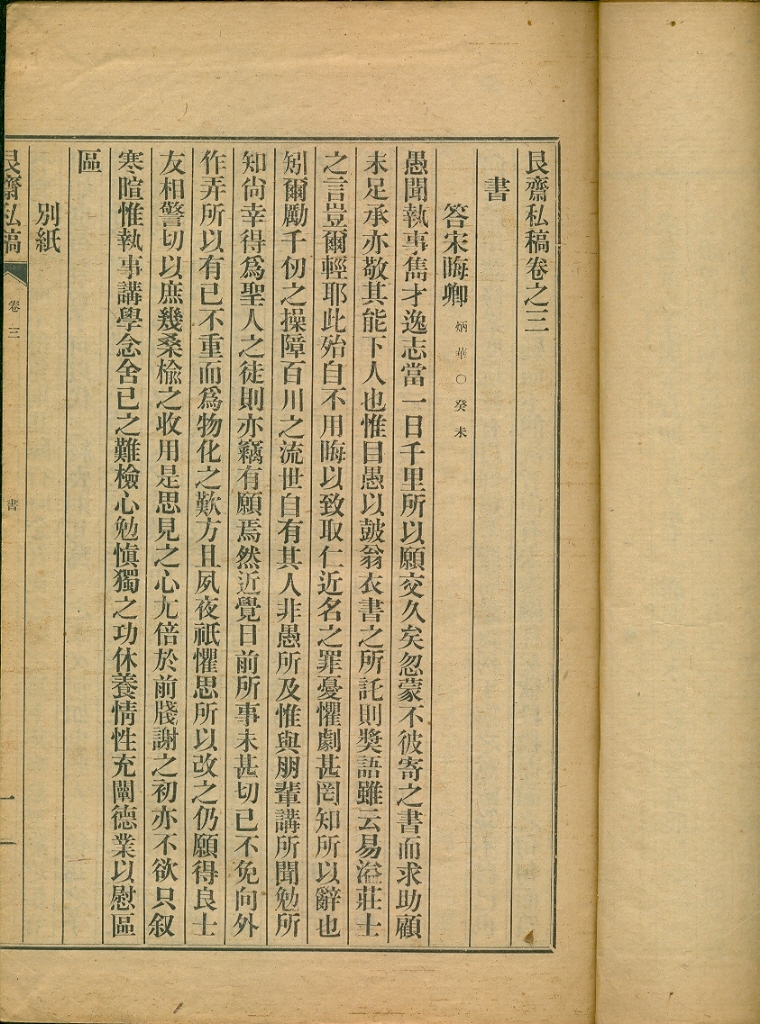 艮齋私稿卷之三
書
答宋晦卿 炳華○癸未
愚聞執事雋才逸志當一日千里所以願交久矣忽蒙不彼寄之書而求助顧
未足承亦敬其能下人也惟目愚以皷翁衣書之所託則奬語雖云易溢莊士
之言豈爾輕耶此殆自不用晦以致取仁近名之罪憂懼劇甚罔知所以辭也
矧爾勵千仞之操障百川之流世自有其人非愚所及惟與朋輩講所聞勉所
知尙幸得爲聖人之徒則亦竊有願焉然近覺日前所事未甚切已不免向外
作弄所以有已不重而爲物化之歎方且夙夜祇懼思所以改之仍願得良士
友相警切以庶幾桑楡之收用是思見之心尤倍於前牋謝之初亦不欲只叙
寒暄惟執事講學念舍已之難檢心勉愼獨之功休養情性充闡德業以慰區
區
別紙
艮齋私稿 卷三 書 一